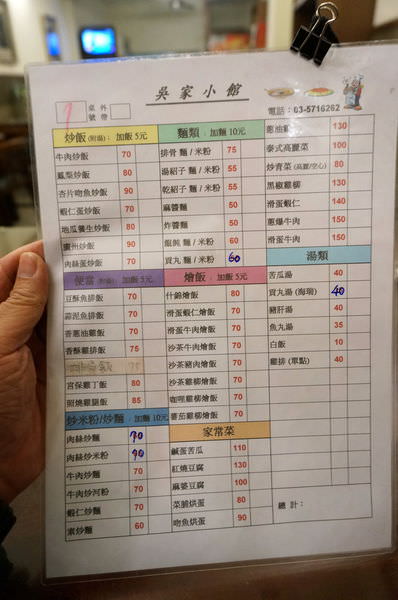 吳家小館
1
桌號
外帶
電話：03-5716262
炒飯 (附湯)：加飯 5元
牛肉炒飯 70
鳳梨炒飯 80
杏片吻魚炒飯 90
蝦仁蛋炒飯 70
地瓜養生炒飯 80
廣州炒飯 90
肉絲蛋炒飯 70
便當 (附湯)：加飯 5元
豆酥魚排飯 70
蒜泥魚排飯 70
香蔥油雞飯 70
香酥雞排飯 75
75
宮保雞丁飯 80
照燒雞腿飯 85
炒米粉/炒麵：加麵 10元
肉絲炒麵 70
肉絲炒米粉 70
牛肉炒麵 70
牛肉炒河粉 70
蝦仁炒麵 70
素炒麵 60
麵類：加麵 10元
排骨 麵 / 米粉 75
湯紹子 麵 / 米粉 55
乾紹子 麵 / 米粉 55
麻醬麵 50
炸醬麵 50
餛飩 麵 / 米粉 60
貢丸 麵 / 米粉 60
燴飯：加飯 5元
什錦燴飯 80
滑蛋蝦仁燴飯 70
滑蛋牛肉燴飯 70
沙茶牛肉燴飯 70
沙茶豬肉燴飯 70
沙茶雞柳燴飯 70
咖哩雞柳燴飯 70
蕃茄雞柳燴飯 70
家常菜
鹹蛋苦瓜 110
紅燒豆腐 130
麻婆豆腐 100
菜脯烘蛋 80
吻魚烘蛋 90
蔥油雞 130
泰式高麗菜 100
炒青菜 (高麗/空心) 80
黑椒雞柳 130
滑蛋蝦仁 140
蔥爆牛肉 150
滑蛋牛肉 150
湯類
苦瓜湯 40
貢丸湯 (海瑞) 40
豬肝湯 40
魚丸湯 35
白飯 10
雞排 (單點) 40
總計：